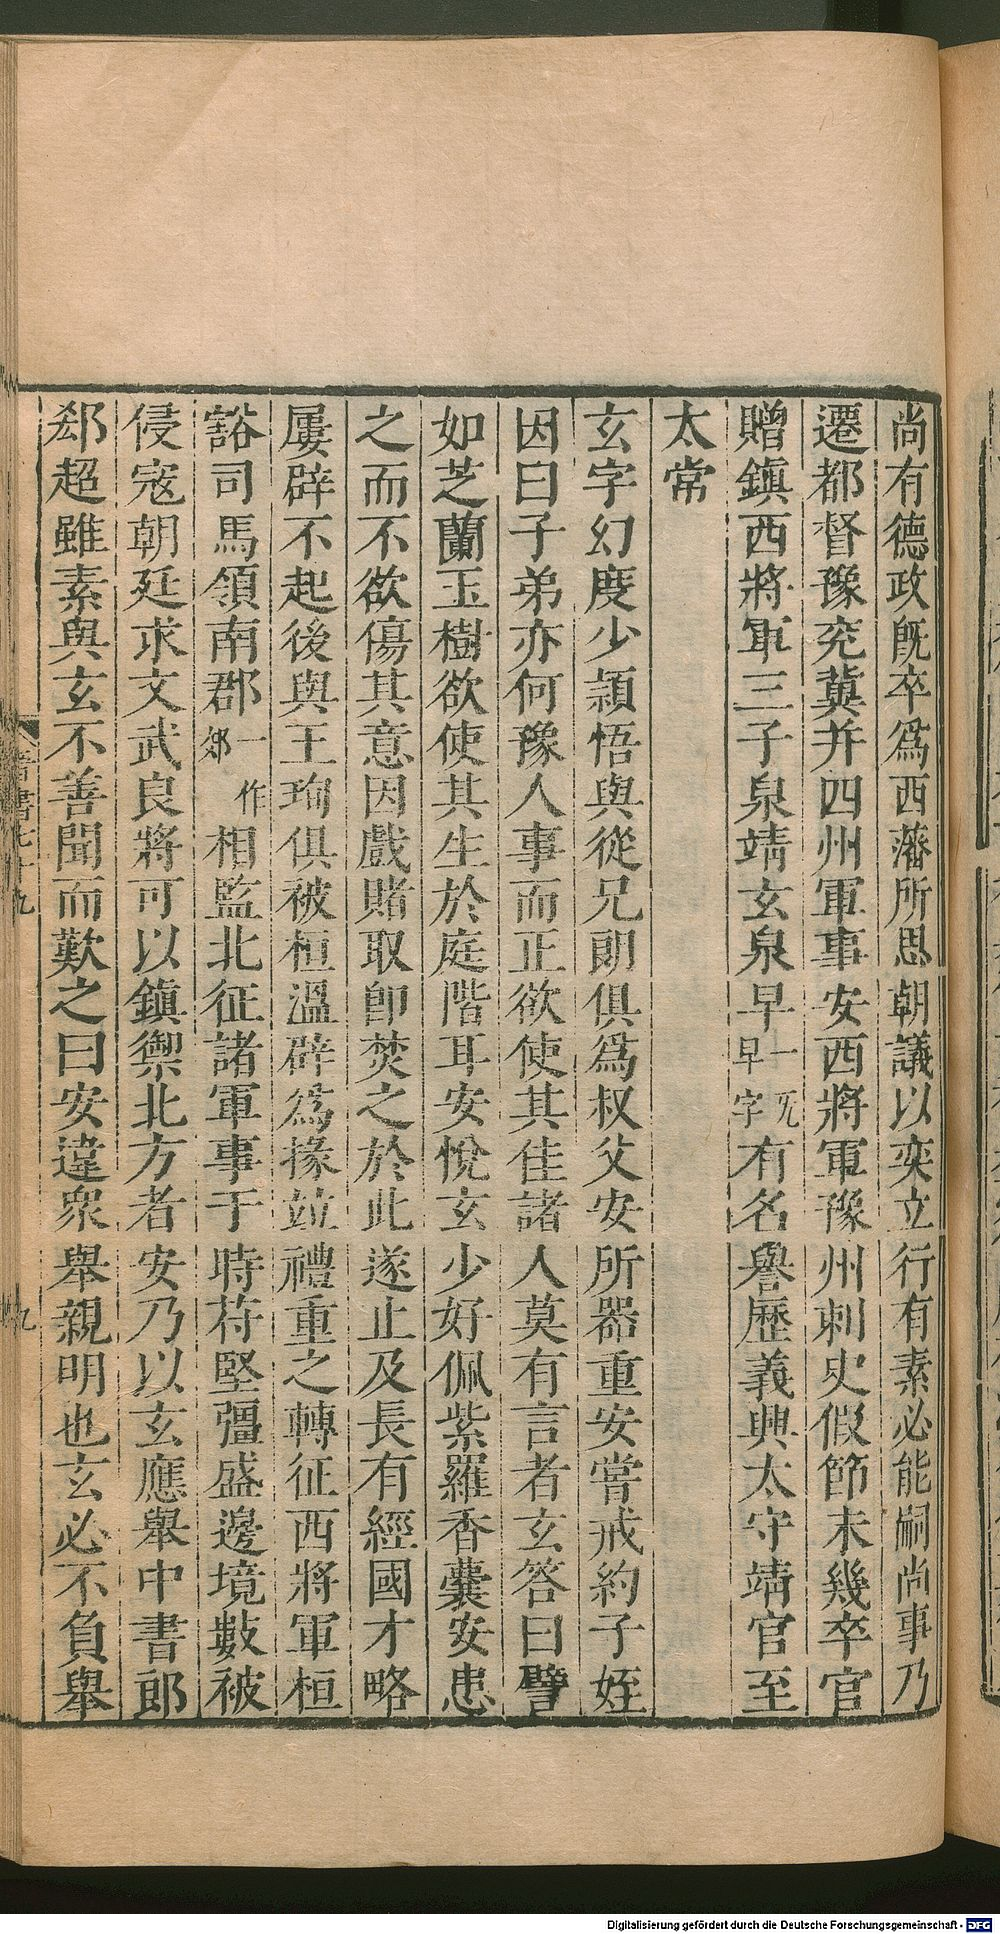 尚有德政旣卒爲西藩所思朝議以奕立行有素必能嗣尚事乃
遷都督豫兖冀幷四州軍事安西將軍豫州刺史假節未幾卒官
贈鎭西將軍三子泉靖玄泉早一旡早字有名譽歷義興太守靖官至
太常
玄字幻度少頴悟與從兄朗俱爲叔父安所器重安嘗戒約子姪
因曰子弟亦何豫人事而正欲使其佳諸人莫有言者玄答曰譬
如芝蘭玉樹欲使其生於庭階耳安悅玄少好佩紫羅香囊安患
之而不欲傷其意因戲賭取卽焚之於此遂止及長有經國才略
屢辟不起後與王珣俱被桓溫辟爲掾竝禮重之轉征西將軍桓
豁司馬領南郡一作郊相監北征諸軍事于時苻堅彊盛邊境數被
侵寇朝廷求文武良將可以鎭禦北方者安乃以玄應舉中書郎
郄超雖素與玄不善聞而歎之曰安違衆舉親明也玄必不負舉
晉書七十九
九
Digitalisierung gefördert durch die Deutsche Forschungsgemeinschaft - DFG